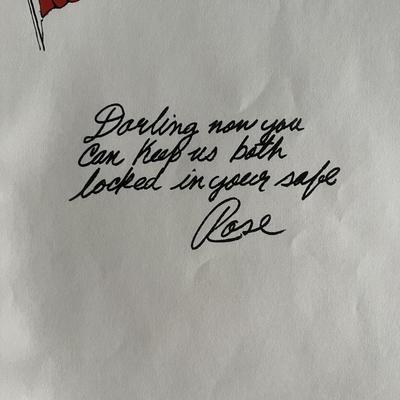 Darling now you
can keep us both
locked in your safe
Rose